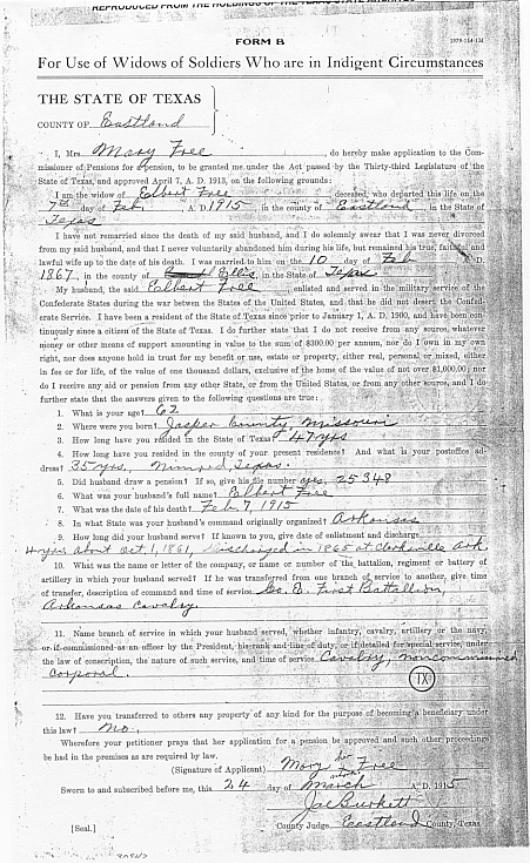 REPRODUCED FROM THE HOLDINGS OF THE TEXAS STATE ARCHIVES
FORM B
For Use of Widows of Soldiers Who are in Indigent Circumstances
THE STATE OF TEXAS
COUNTY OF Eastland
I, Mrs Mary Free, do hereby make application to the Com-
missioner of Pensions for a pension, to be granted me under the Act passed by the Thirty-third Legislature of the
State of Texas, and approved April 7, A. D. 1913, on the following grounds:
I am the widow of Elbert Free deceased, who departed this life on the
7th day of Feb. A. D. 1915, in the county of Eastland, in the State of
Texas
I have not remarried since the death of my said husband, and I do solemnly swear that I was never divorced
from my said husband, and that I never voluntarily abandoned him during his life, but remained his true, faithful and
lawful wife up to the date of his death. I was married to him on the 10 day of Feb A. D.
1867, in the county of Ellis, in the State of Texas
My husband, the said Elbert Free enlisted and served in the military service of the
Confederate States during the war between the States of the United States, and that he did not desert the Confed-
erate Service. I have been a resident of the State of Texas since prior to January 1, A. D. 1900, and have been con-
tinuously since a citizen of the State of Texas. I do further state that I do not receive from any source, whatever
money or other means of support amounting in value to the sum of $300.00 per annum, nor do I own in my own
right, nor does anyone hold in trust for my benefit or use, estate or property, either real, personal or mixed, either
in fee or for life, of the value of one thousand dollars, exclusive of the home of the value of not over $1,000.00; nor
do I receive any aid or pension from any other State, or from the United States, or from any other source, and I do
further state that the answers given to the following questions are true:
1. What is your age? 62
2. Where were you born? Jasper County, Missouri
3. How long have you resided in the State of Texas? 47 yrs
4. How long have you resided in the county of your present residence? And what is your postoffice ad-
dress? 35 yrs. Nimrod, Texas.
5. Did husband draw a pension? If so, give his file number yes. 25348
6. What was your husband's full name? Elbert Free
7. What was the date of his death? Feb. 7, 1915
8. In what State was your husband's command originally organized? Arkansas
9. How long did your husband serve? If known to you, give date of enlistment and discharge
4 years about Oct. 1, 1861, Discharged in 1865 at Clarksville Ark.
10. What was the name or letter of the company, or name or number of the battalion, regiment or battery of
artillery in which your husband served? If he was transferred from one branch of service to another, give time
of transfer, description of command and time of service Co. E. First Battallion,
Arkansas Cavalry.
11. Name branch of service in which your husband served, whether infantry, cavalry, artillery or the navy,
or if commissioned as an officer by the President, his rank and line of duty, or if detailed for special service, under
the law of conscription, the nature of such service, and time of service Cavalry,
corporal.
TX
12. Have you transferred to others any property of any kind for the purpose of becoming a beneficiary under
this law? No.
Wherefore your petitioner prays that her application for a pension be approved and such other proceedings
be had in the premises as are required by law.
(Signature of Applicant) Mary her mark Free
Sworn to and subscribed before me, this 24 day of March A. D. 1915
Joe Burkett
[Seal.] County Judge Eastland County, Texas